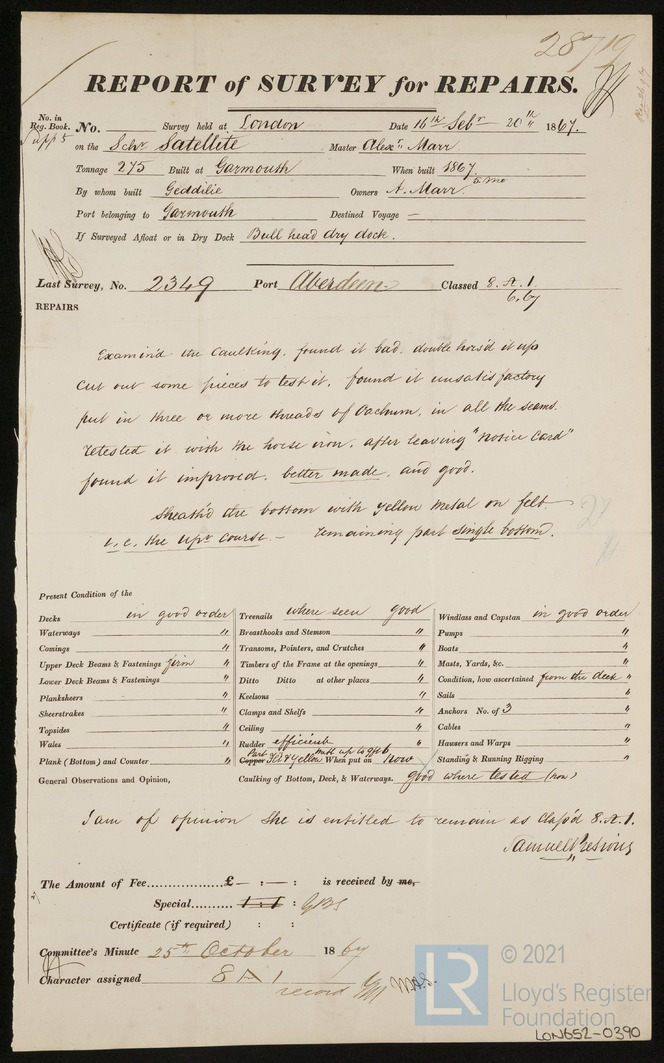 28719
REPORT of SURVEY for REPAIRS.
No. in Reg. Book. No. Survey held at London Date 16th Sebr 20th 1867.
Supp 5 on the Schr Satellite Master Alexr Marr
Tonnage 275 Built at Garmouth When built 1867. 5 mo
By whom built Geddilie Owners A. Marr
Port belonging to Garmouth Destined Voyage —
If Surveyed Afloat or in Dry Dock Bull head dry dock.
Last Survey, No. 2349 Port Aberdeen Classed 8. A. 1.
6.67
REPAIRS
Examin'd the caulking. found it bad. double hors'd it up
cut out some pieces to test it. found it unsatisfactory
put in three or more threads of Oachum, in all the seams.
retested it with the horse iron. after leaving "Notice Card"
found it improved. better made, and good.
Sheath'd the bottom with yellow metal on felt
i, e, the upr course. — remaining part single bottom.
Present Condition of the
Decks in good order
Waterways "
Comings "
Upper Deck Beams & Fastenings firm "
Lower Deck Beams & Fastenings "
Planksheers "
Sheerstrakes "
Topsides "
Wales "
Plank (Bottom) and Counter "
General Observations and Opinion,
Treenails where seen good
Breasthooks and Stemson "
Transoms, Pointers, and Crutches "
Timbers of the Frame at the openings "
Ditto Ditto at other places "
Keelsons "
Clamps and Shelfs "
Ceiling "
Rudder efficient "
Copper Part Fd & Yellow Metl up to 9ft 6 When put on now
Caulking of Bottom, Deck, & Waterways. good where tested (now)
Windlass and Capstan in good order
Pumps "
Boats "
Masts, Yards, &c. "
Condition, how ascertained from the deck "
Sails "
Anchors No. of 3 "
Cables "
Hawsers and Warps "
Standing & Running Rigging "
I am of opinion she is entitled to remain as Clas'd 8. A. 1.
Samuel Presious
The Amount of Fee £ — : — : is received by me,
Special 1 : 1 :
Certificate (if required) : :
Committee's Minute 25th October 1867
Character assigned 8 A 1
record
© 2021
LR
Lloyd's Register
Foundation
LON652-0390